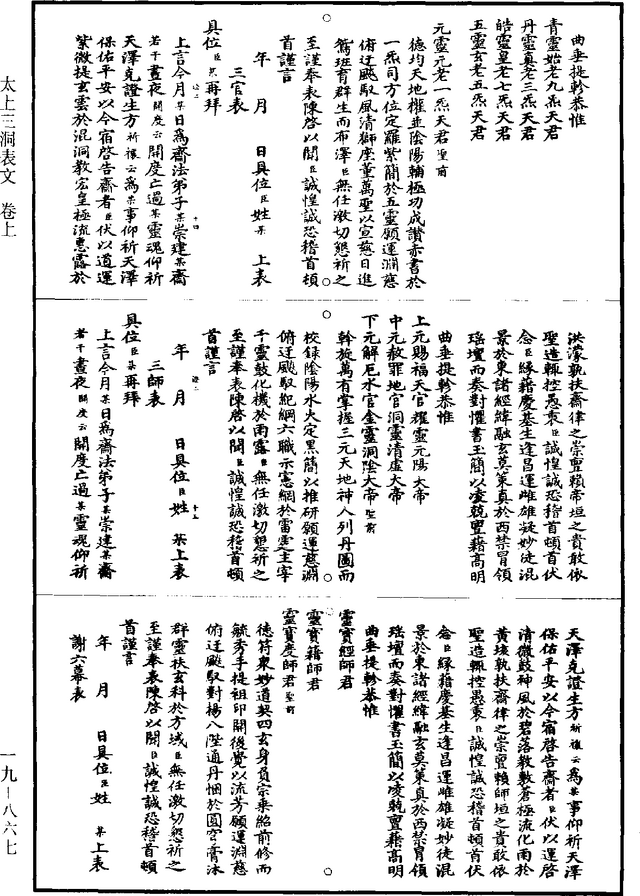 太上三洞表文 卷上
一九—八六七
曲垂提軫恭惟
青靈始老九炁天君
丹靈真老三炁天君
皓靈皇老七炁天君
五靈玄老五炁天君
元靈元老一炁天君聖前
德均天地櫂並陰陽輔極功成讃赤書於
一炁司方位定羅紫簡於五靈願運淵慈
俯迂颷馭風清獅座董萬聖以宣慈日進
鸞班育群生而布澤臣無任激切懇祈之
至謹奉表陳啓以聞臣誠惶誠恐稽首頓
首謹言
年 月 日具位臣姓某 上表
三官表
具位臣某再拜
上言今月某日爲齋法弟子某崇建某齋
若干晝夜開度云開度亡過某靈魂仰祈
天澤克證生方祈禳云爲某事仰祈天澤
保佑平安以今宿啓告齋者臣伏以道運
紫微提玄雲於混洞教宏皇極流惠露於
洪濛執扶齋律之崇亶賴帝垣之貴敢依
聖造輒控愚衷臣誠惶誠恐稽首頓首伏
念臣緣藉慶基生逢昌運雌雄凝妙徒混
景於東諸經緯融玄莫策真於西禁冐領
瑤壇而奏對懼書玉簡以凌兢亶藉高明
曲垂提軫恭惟
上元賜福天官耀靈元陽大帝
中元赦罪地官洞靈清虛大帝
下元解厄水官金靈洞陰大帝聖前
斡旋萬有掌握三元天地神人列丹圖而
校録陰陽水火定黑簡以推研願運慈淵
俯迂颷馭紀綱六職示憲網於雷霆主宰
千靈鼓化機於雨露臣無任激切懇祈之
至謹奉表陳啓以聞臣誠惶誠恐稽首頓
首謹言
年 月 日具位臣姓 某上表
三師表
具位臣某再拜
上言今月某日爲齋法弟子某崇建某齋
若干晝夜開度云開度亡過某靈魂仰祈
天澤克證生方祈禳云爲某事仰祈天澤
保佑平安以今宿啓告齋者臣伏以運啓
清微鼓神風於碧落教敷蒼極流化雨於
黄埃執扶齋律之崇亶賴師垣之貴敢依
聖造輒控愚衷臣誠惶誠恐稽首頓首伏
念臣緣藉慶基生逢昌運雌雄凝妙徒混
景於東諸經緯融玄莫策真於西禁冐領
瑤壇而奏對懼書玉簡以凌兢亶藉高明
曲垂提軫恭惟
靈寶經師君
靈寶籍師君
靈寶度師君聖前
德符衆妙道契四玄身負宗乘紹前修而
毓秀手提祖印開後覺以流芳願運淵慈
俯迂颷馭對揚八陛通丹悃於圓穹膏沐
群靈扶玄科於方域臣無任激切懇祈之
至謹奉表陳啓以聞臣誠惶誠恐稽首頓
首謹言
年 月 日具位臣姓 某上表
謝六幕表